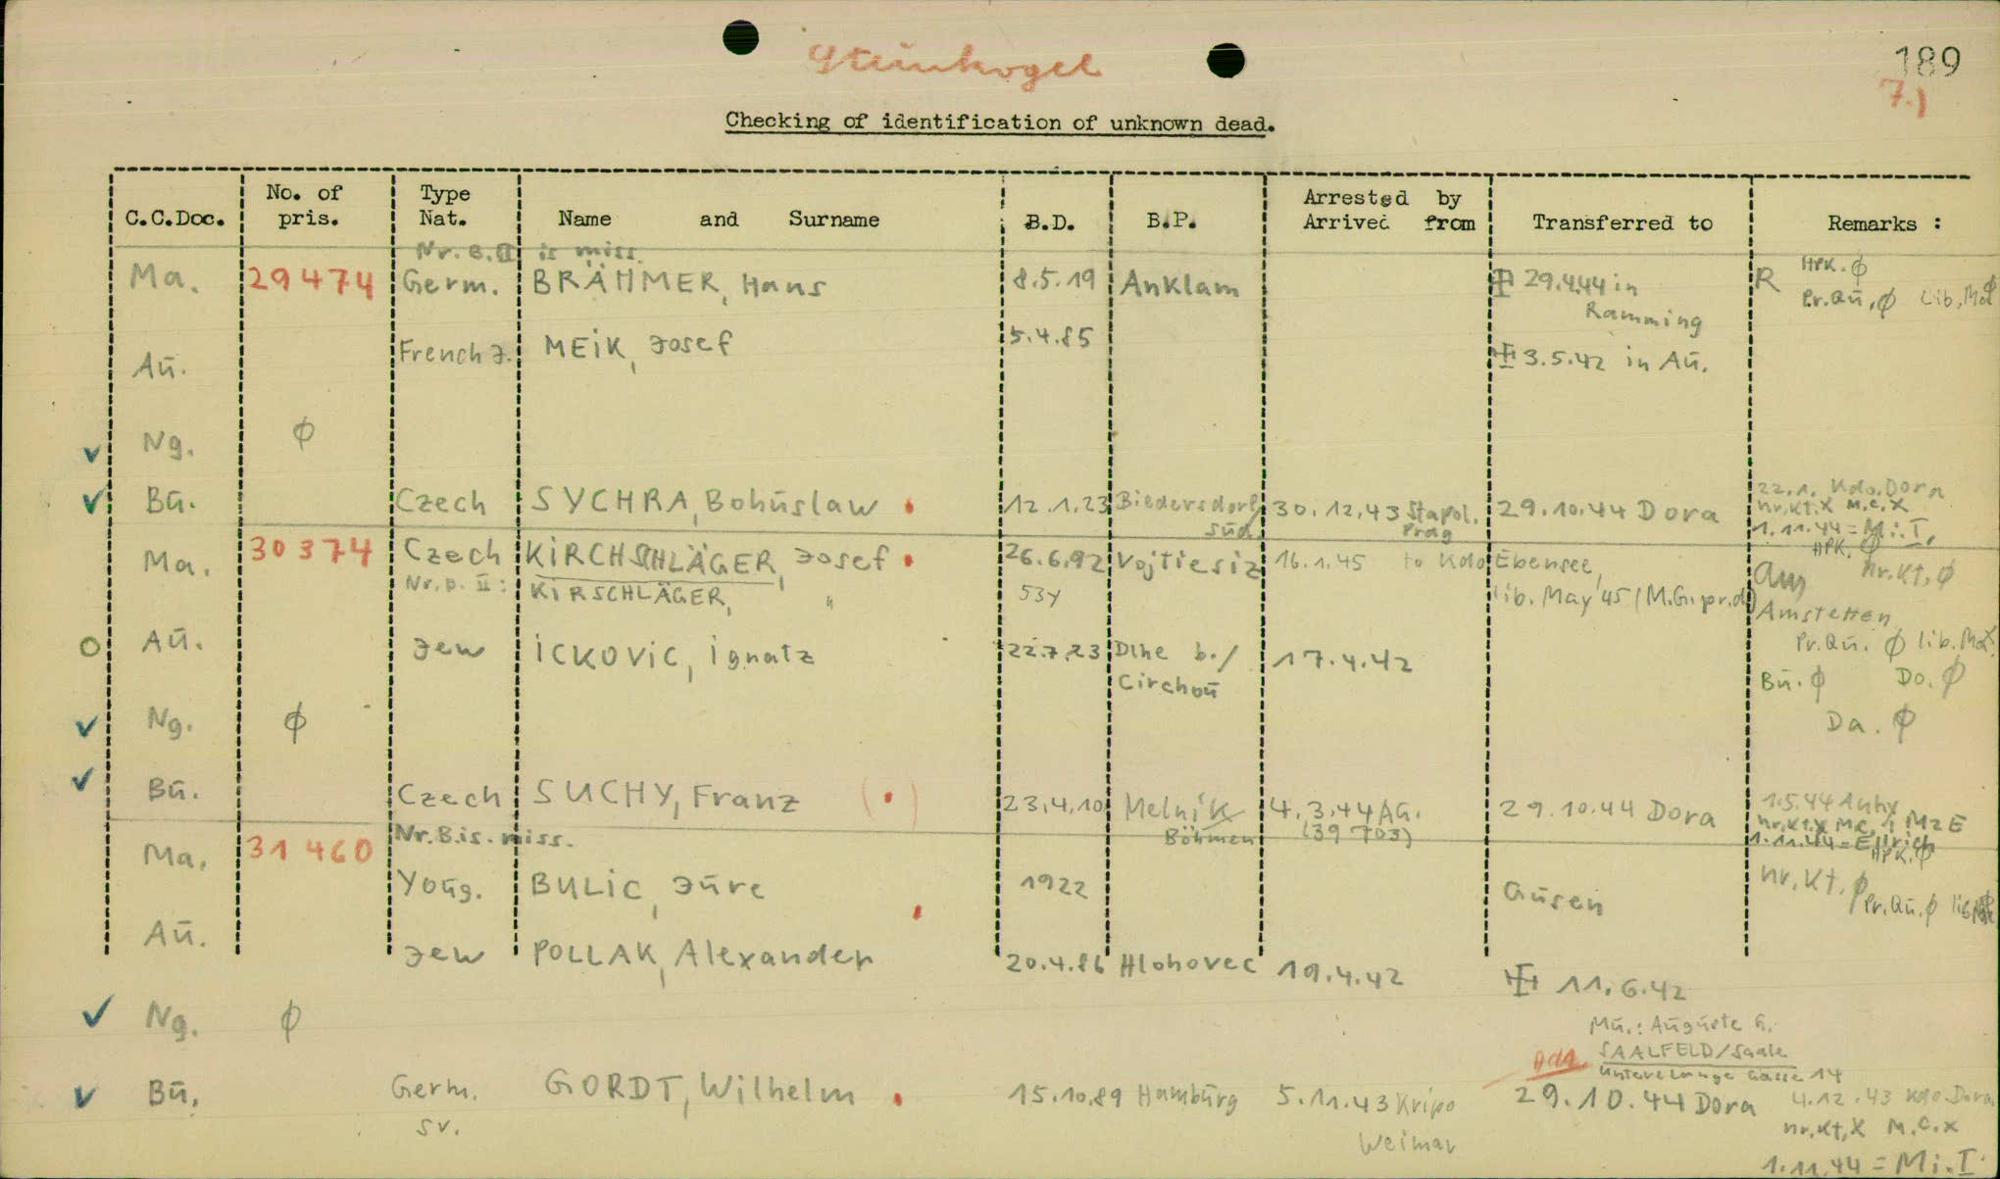 Steinkogel
189
7.)
Checking of identification of unknown dead.
C.C.Doc. No. of pris. Type Nat. Name and Surname B.D. B.P. Arrested by Arrived from Transferred to Remarks :
Nr. B. II is miss.
Ma. 29474 Germ. BRÄHMER, Hans 8.5.19 Anklam 29.4.44 in Ramming R HPK. ϕ
Pr.Qū, ϕ Lib.
Aū. French J. MEiK, Josef 5.4.85 3.5.42 in Aū.
Ng. ϕ
Bū. Czech SYCHRA, Bohūslaw 12.1.23 Biedersdorf Süd 30.12.43 Stapol. Prag 29.10.44 Dora 22.1. Kdo. Dora
nr.Kt.X M.C.X
1.11.44 = Mi.I.
Ma. 30374 Czech KiRCHSCHLÄGER, Josef 26.6.92 Vojtiesiz 16.1.45 to Kdo Ebensee, HPK. ϕ nr.Kt, ϕ
Nr. B. II: KiRSCHLÄGER, " 53y lib. May '45 (M.G. pr.d) aus Amstetten
Pr.Qū. ϕ lib.
Aū. Jew iCKOViC, ignatz 22.7.23 Dlhe b./ Circhoū 17.4.42
Bū. ϕ Do. ϕ
Ng. ϕ Da. ϕ
Bū. Czech SUCHY, Franz ( ) 23.4.10 Melnik Böhmen 4.3.44 AG. (39703) 29.10.44 Dora 1.5.44
nr.Kt.X M.C.
1.11.44 = Ellrich
Nr. B. is. miss. HPK. ϕ
Ma. 31460 Yoūg. BULiC, Jūre 1922 Gūsen nr.Kt. ϕ
Pr.Qū. ϕ
Aū. Jew POLLAK, Alexander 20.4.86 Hlohovec 19.4.42 11.6.42
Ng. ϕ
Mū.: Aūgūste G.
SAALFELD/Saale
Untere lange Gasse 14
Bū. Germ. GORDT, Wilhelm 15.10.89 Hambūrg 5.11.43 Kripo 29.10.44 Dora 4.12.43 Kdo. Dora
sv. Weimar nr.Kt, X M.C.X
1.11.44 = Mi.I